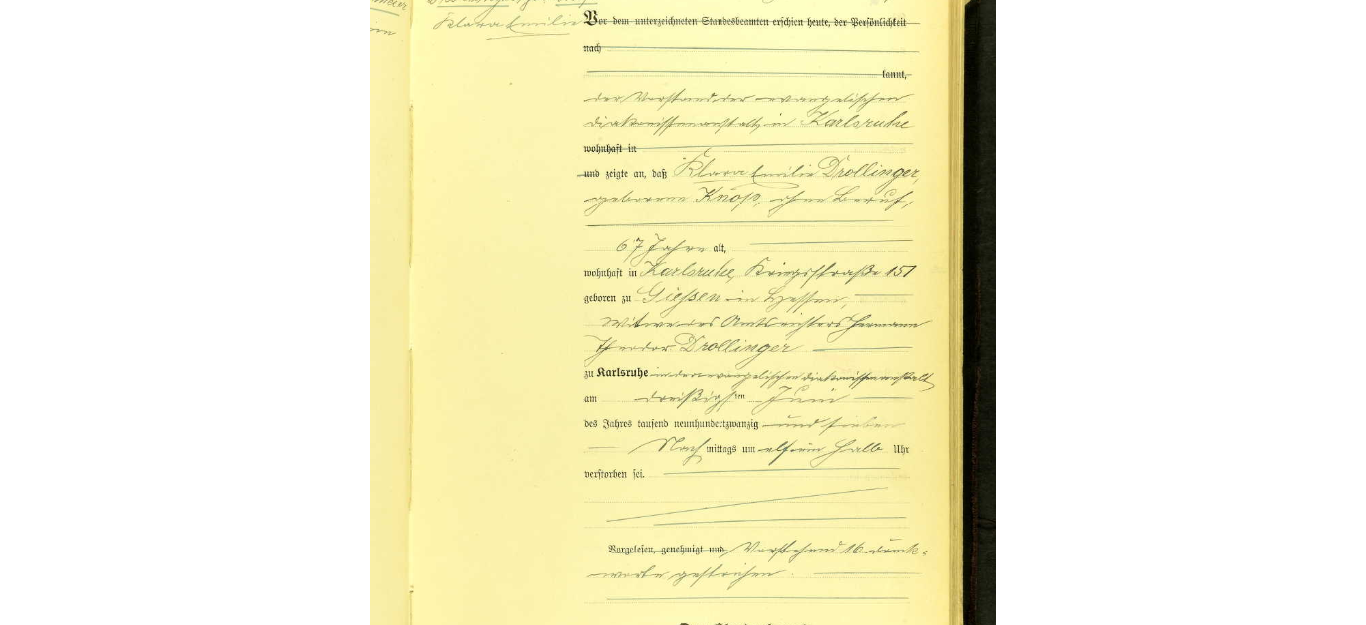 Klara Emilie
Vor dem unterzeichneten Standesbeamten erschien heute, der Persönlichkeit
nach
kannt,
der Vorstand der evangelischen
Diakonissenanstalt in Karlsruhe
wohnhaft in
und zeigte an, daß Klara Emilie Drollinger,
geborene Knoß, ohne Beruf,
67 Jahre alt,
wohnhaft in Karlsruhe, Kriegsstraße 151
geboren zu Gießen in Hessen,
Witwe des Amtsrichters Hermann
Theodor Drollinger
zu Karlsruhe in der evangelischen Diakonissenanstalt
am dreißigsten Juni
des Jahres tausend neunhundertzwanzig und sieben
Nachmittags um elf ein halb Uhr
verstorben sei.
Vorgelesen, genehmigt und Vorstehend 16 Druck-
worte gestrichen.